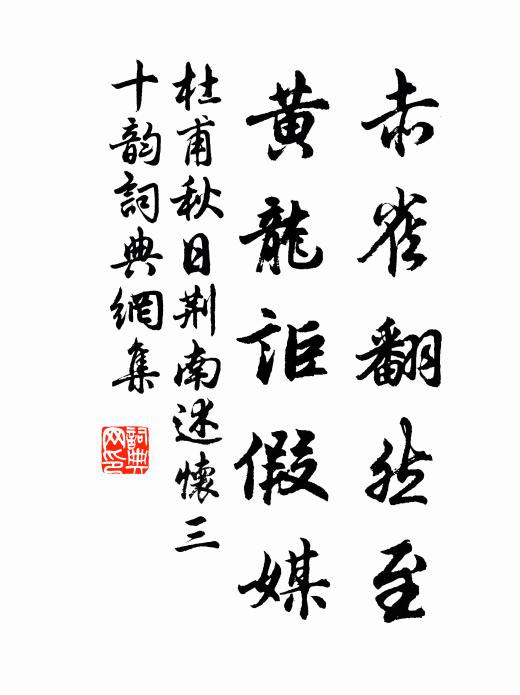 赤雀翻然至
黄龍詎假媒
杜甫秋日荆南述懷三
十韵詞典網集
詞典
网印